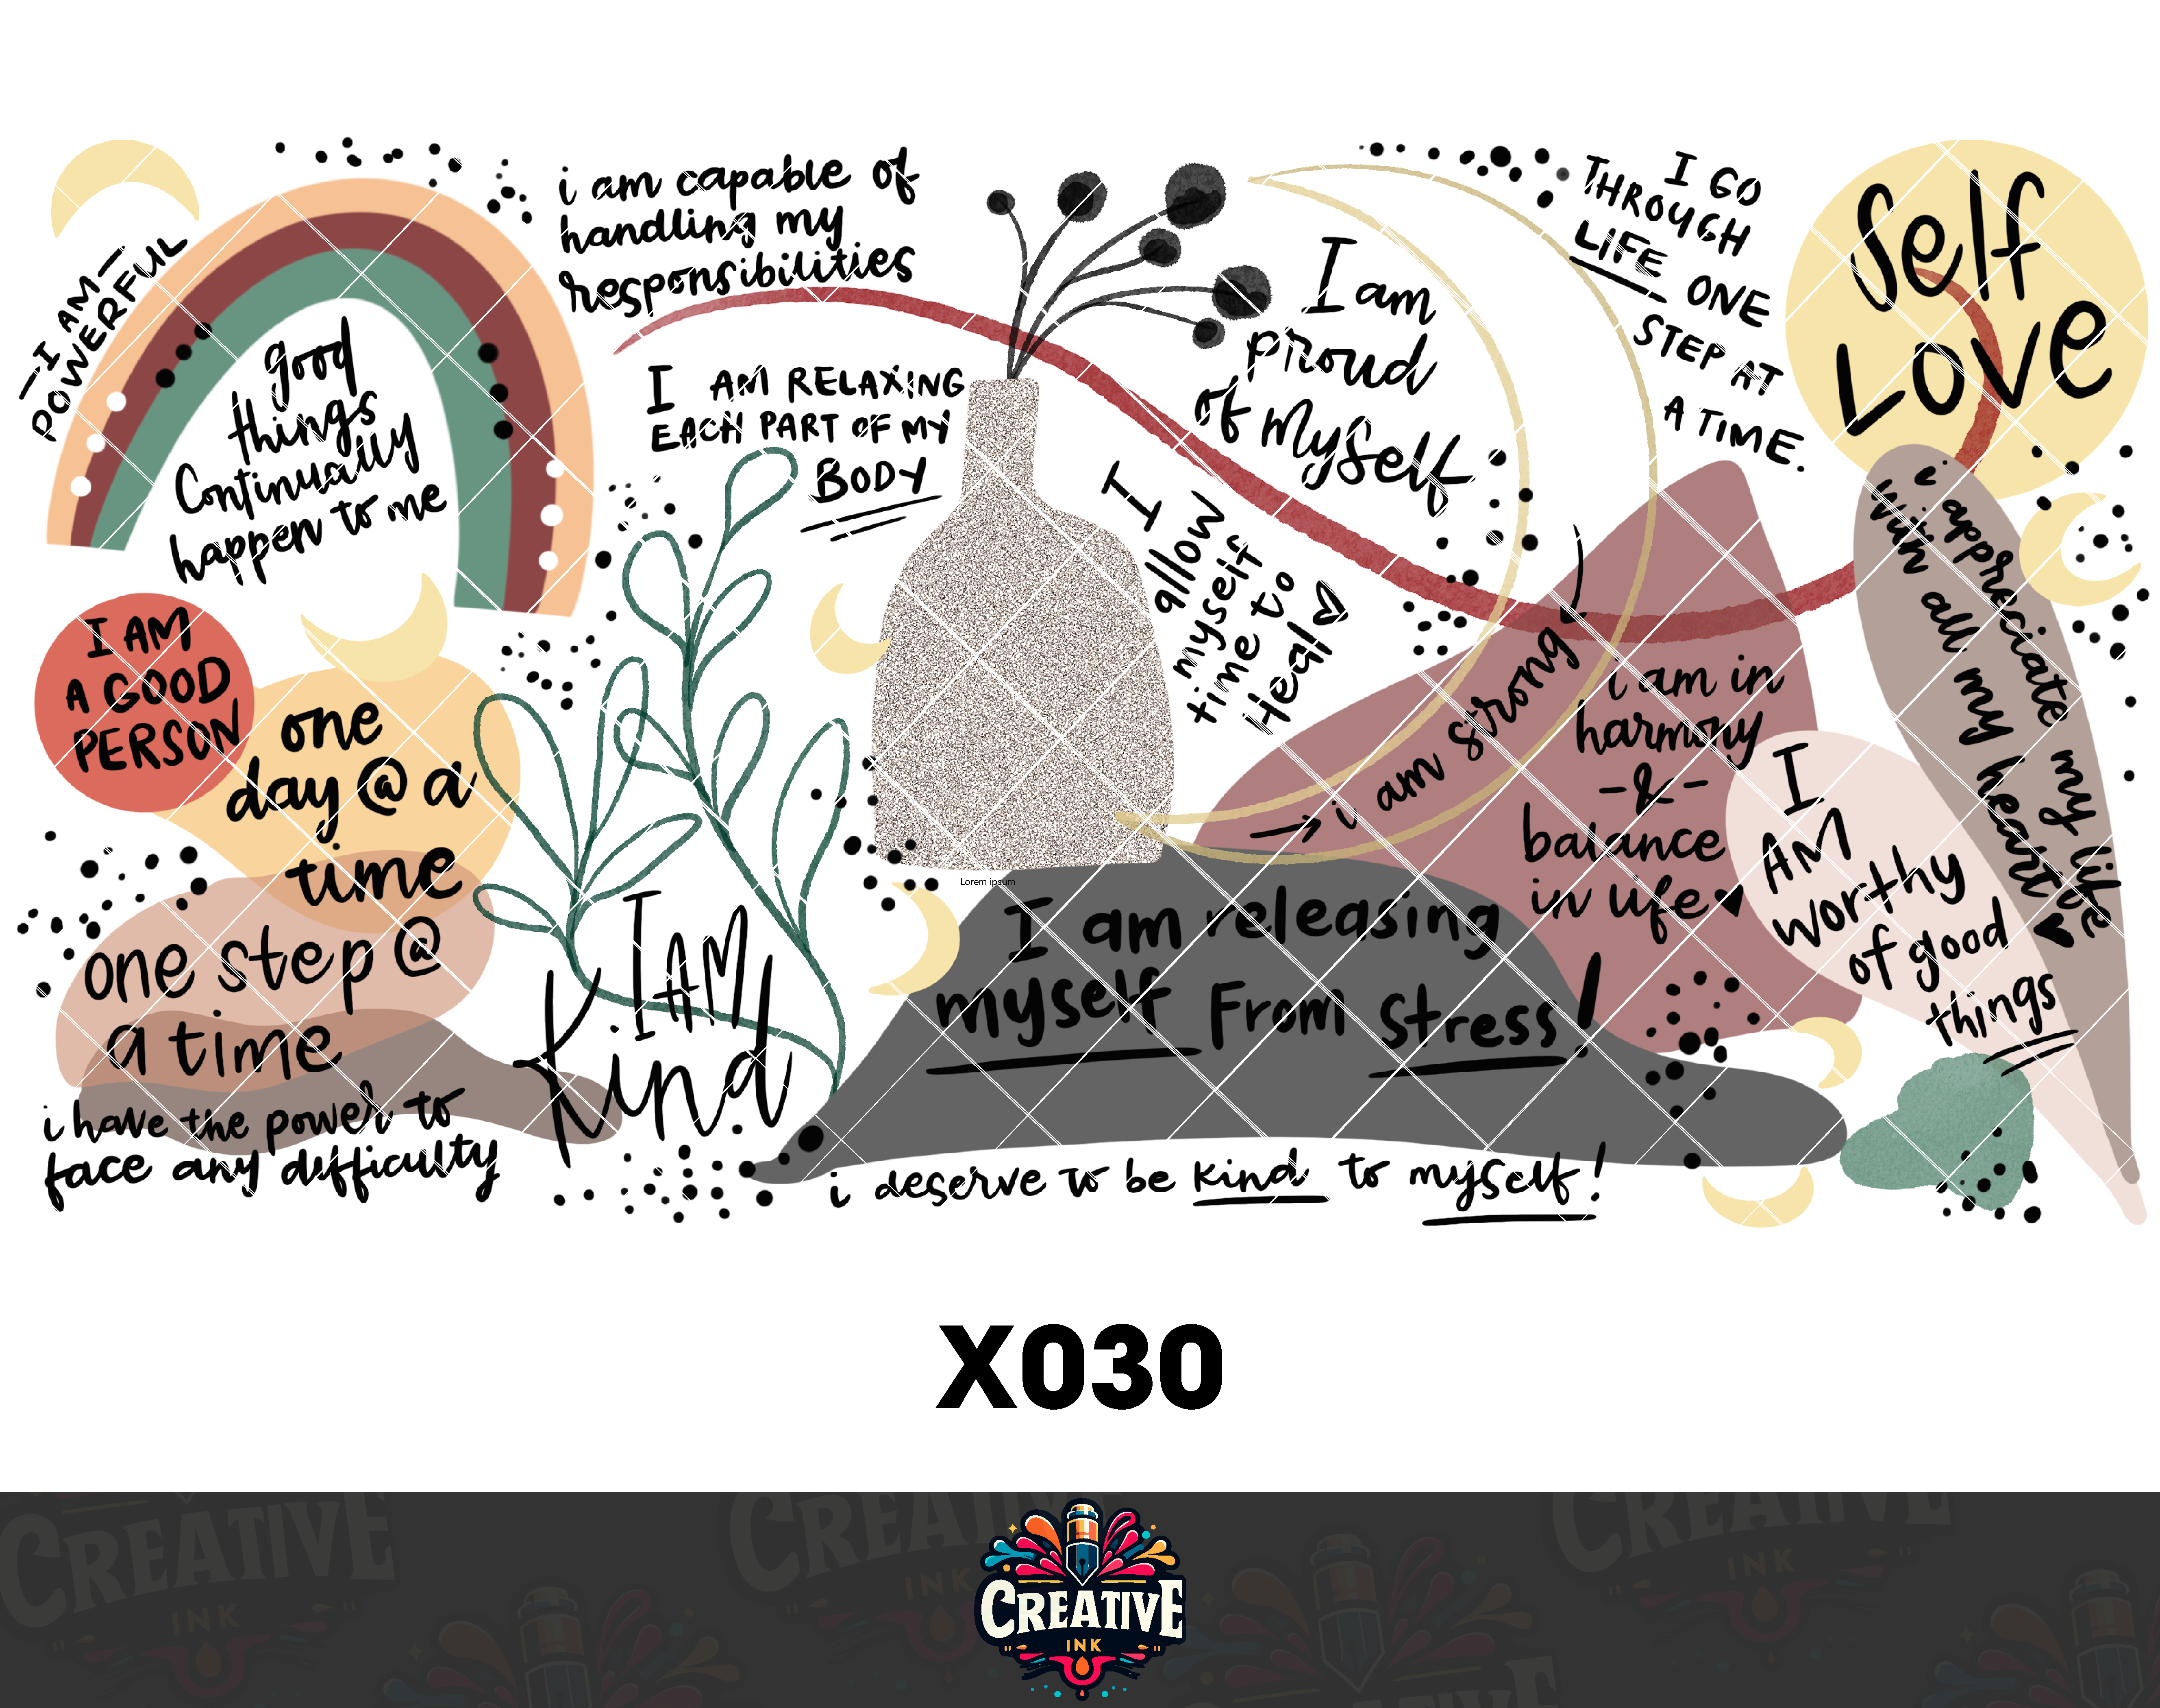 — I AM —
POWERFUL
good
things
Continually
happen to me
i am capable of
handling my
responsibilities
I AM RELAXING
EACH PART OF MY
BODY
I am
proud
of Myself
I GO
THROUGH
LIFE ONE
STEP AT
A TIME.
Self
LOVE
I
allow
myself
time to
Heal
I AM
A GOOD
PERSON
one
day @ a
time
one step @
a time
i have the power to
face any difficulty
I AM
Kind
Lorem ipsum
i am strong
i am in
harmony
- & -
balance
in life
i appreciate my life
with all my heart
I
AM
worthy
of good
things
I am releasing
myself From Stress!
i deserve to be kind to myself!
X030
CREATIVE
INK